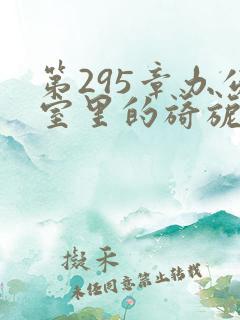 第295章办公
室里的旖旎
擬禾
未经同意禁止转载